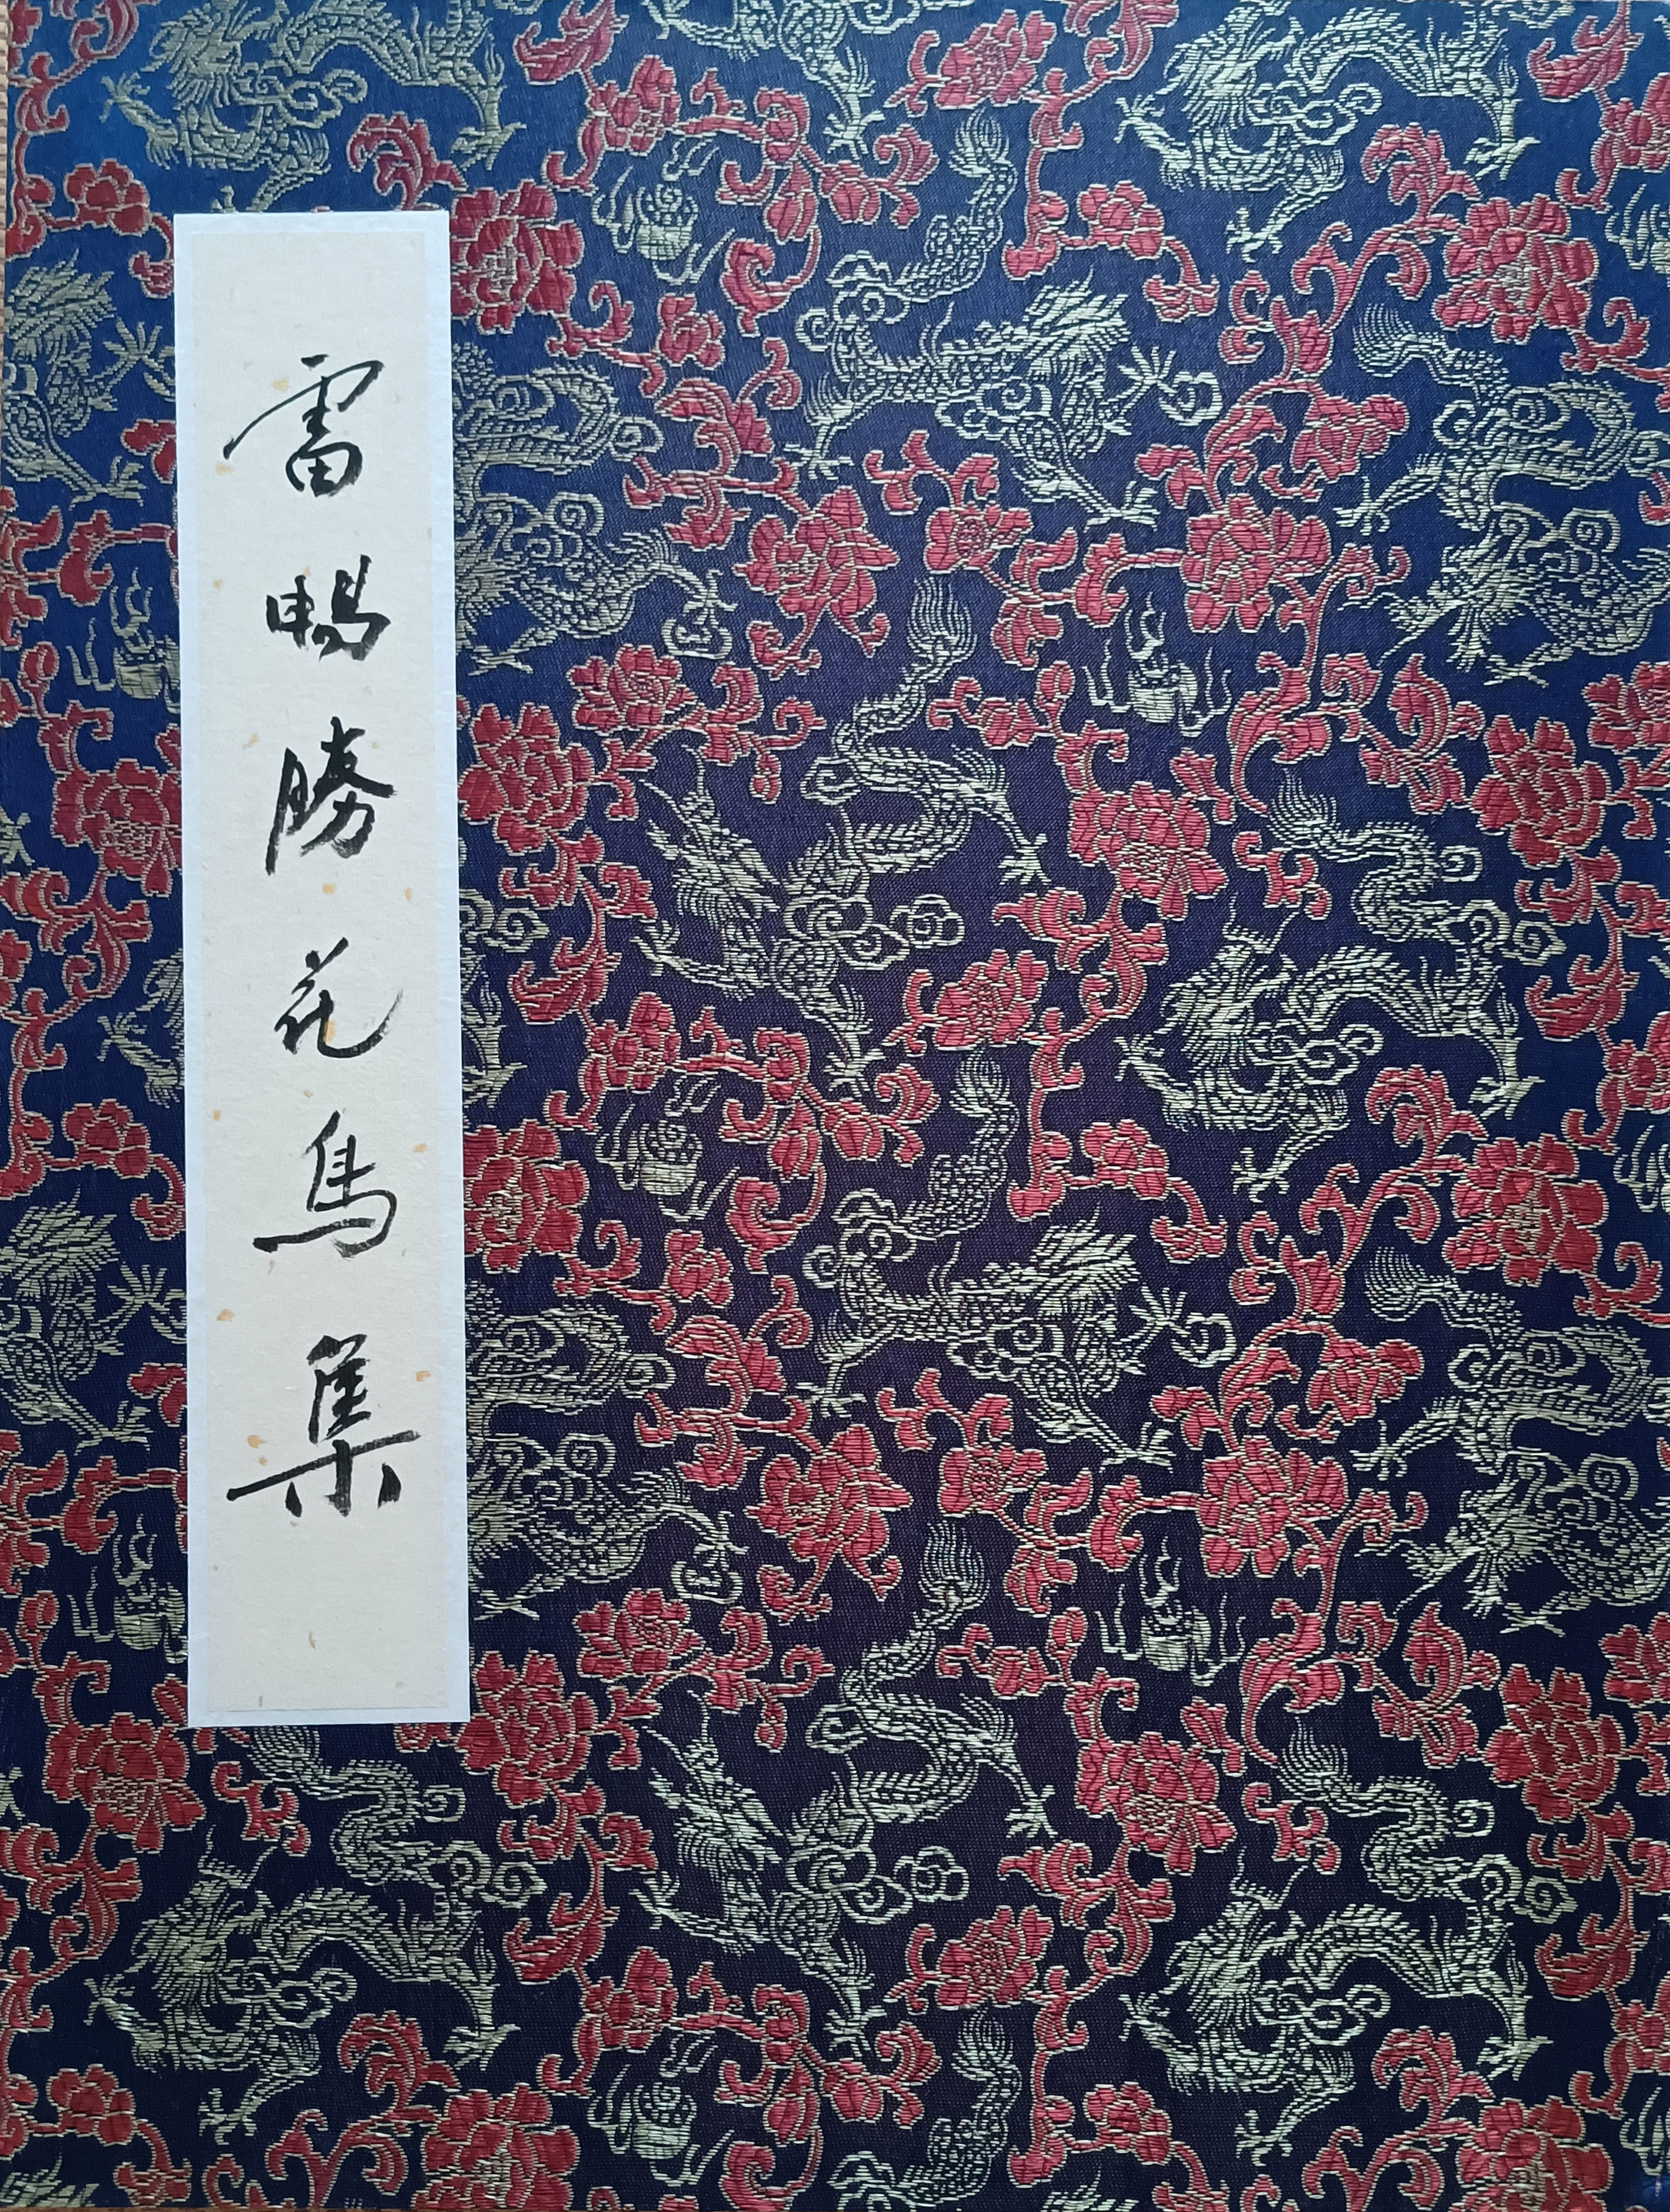 雷暢勝花鳥集